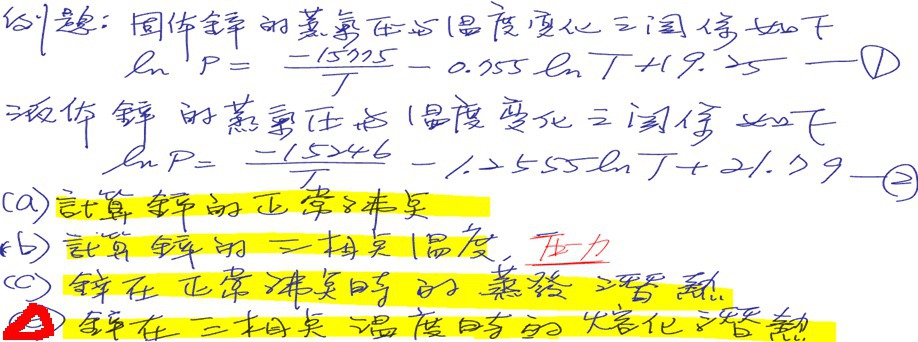 例題：固体鋅的蒸氣圧与温度変化之関係如下
ln P = -15775/T - 0.755 ln T + 19.25 —①
液体鋅的蒸氣圧与温度変化之関係如下
ln P = -15246/T - 1.2555 ln T + 21.79 —②
(a) 計算鋅的正常沸点
(b) 計算鋅的三相点温度，压力
(c) 鋅在正常沸点時的蒸發潛熱
鋅在三相点温度時的熔化潛熱